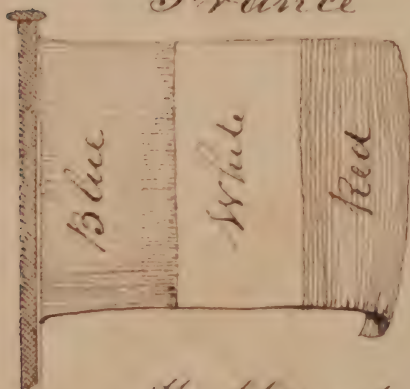 France
Blue
White
Red